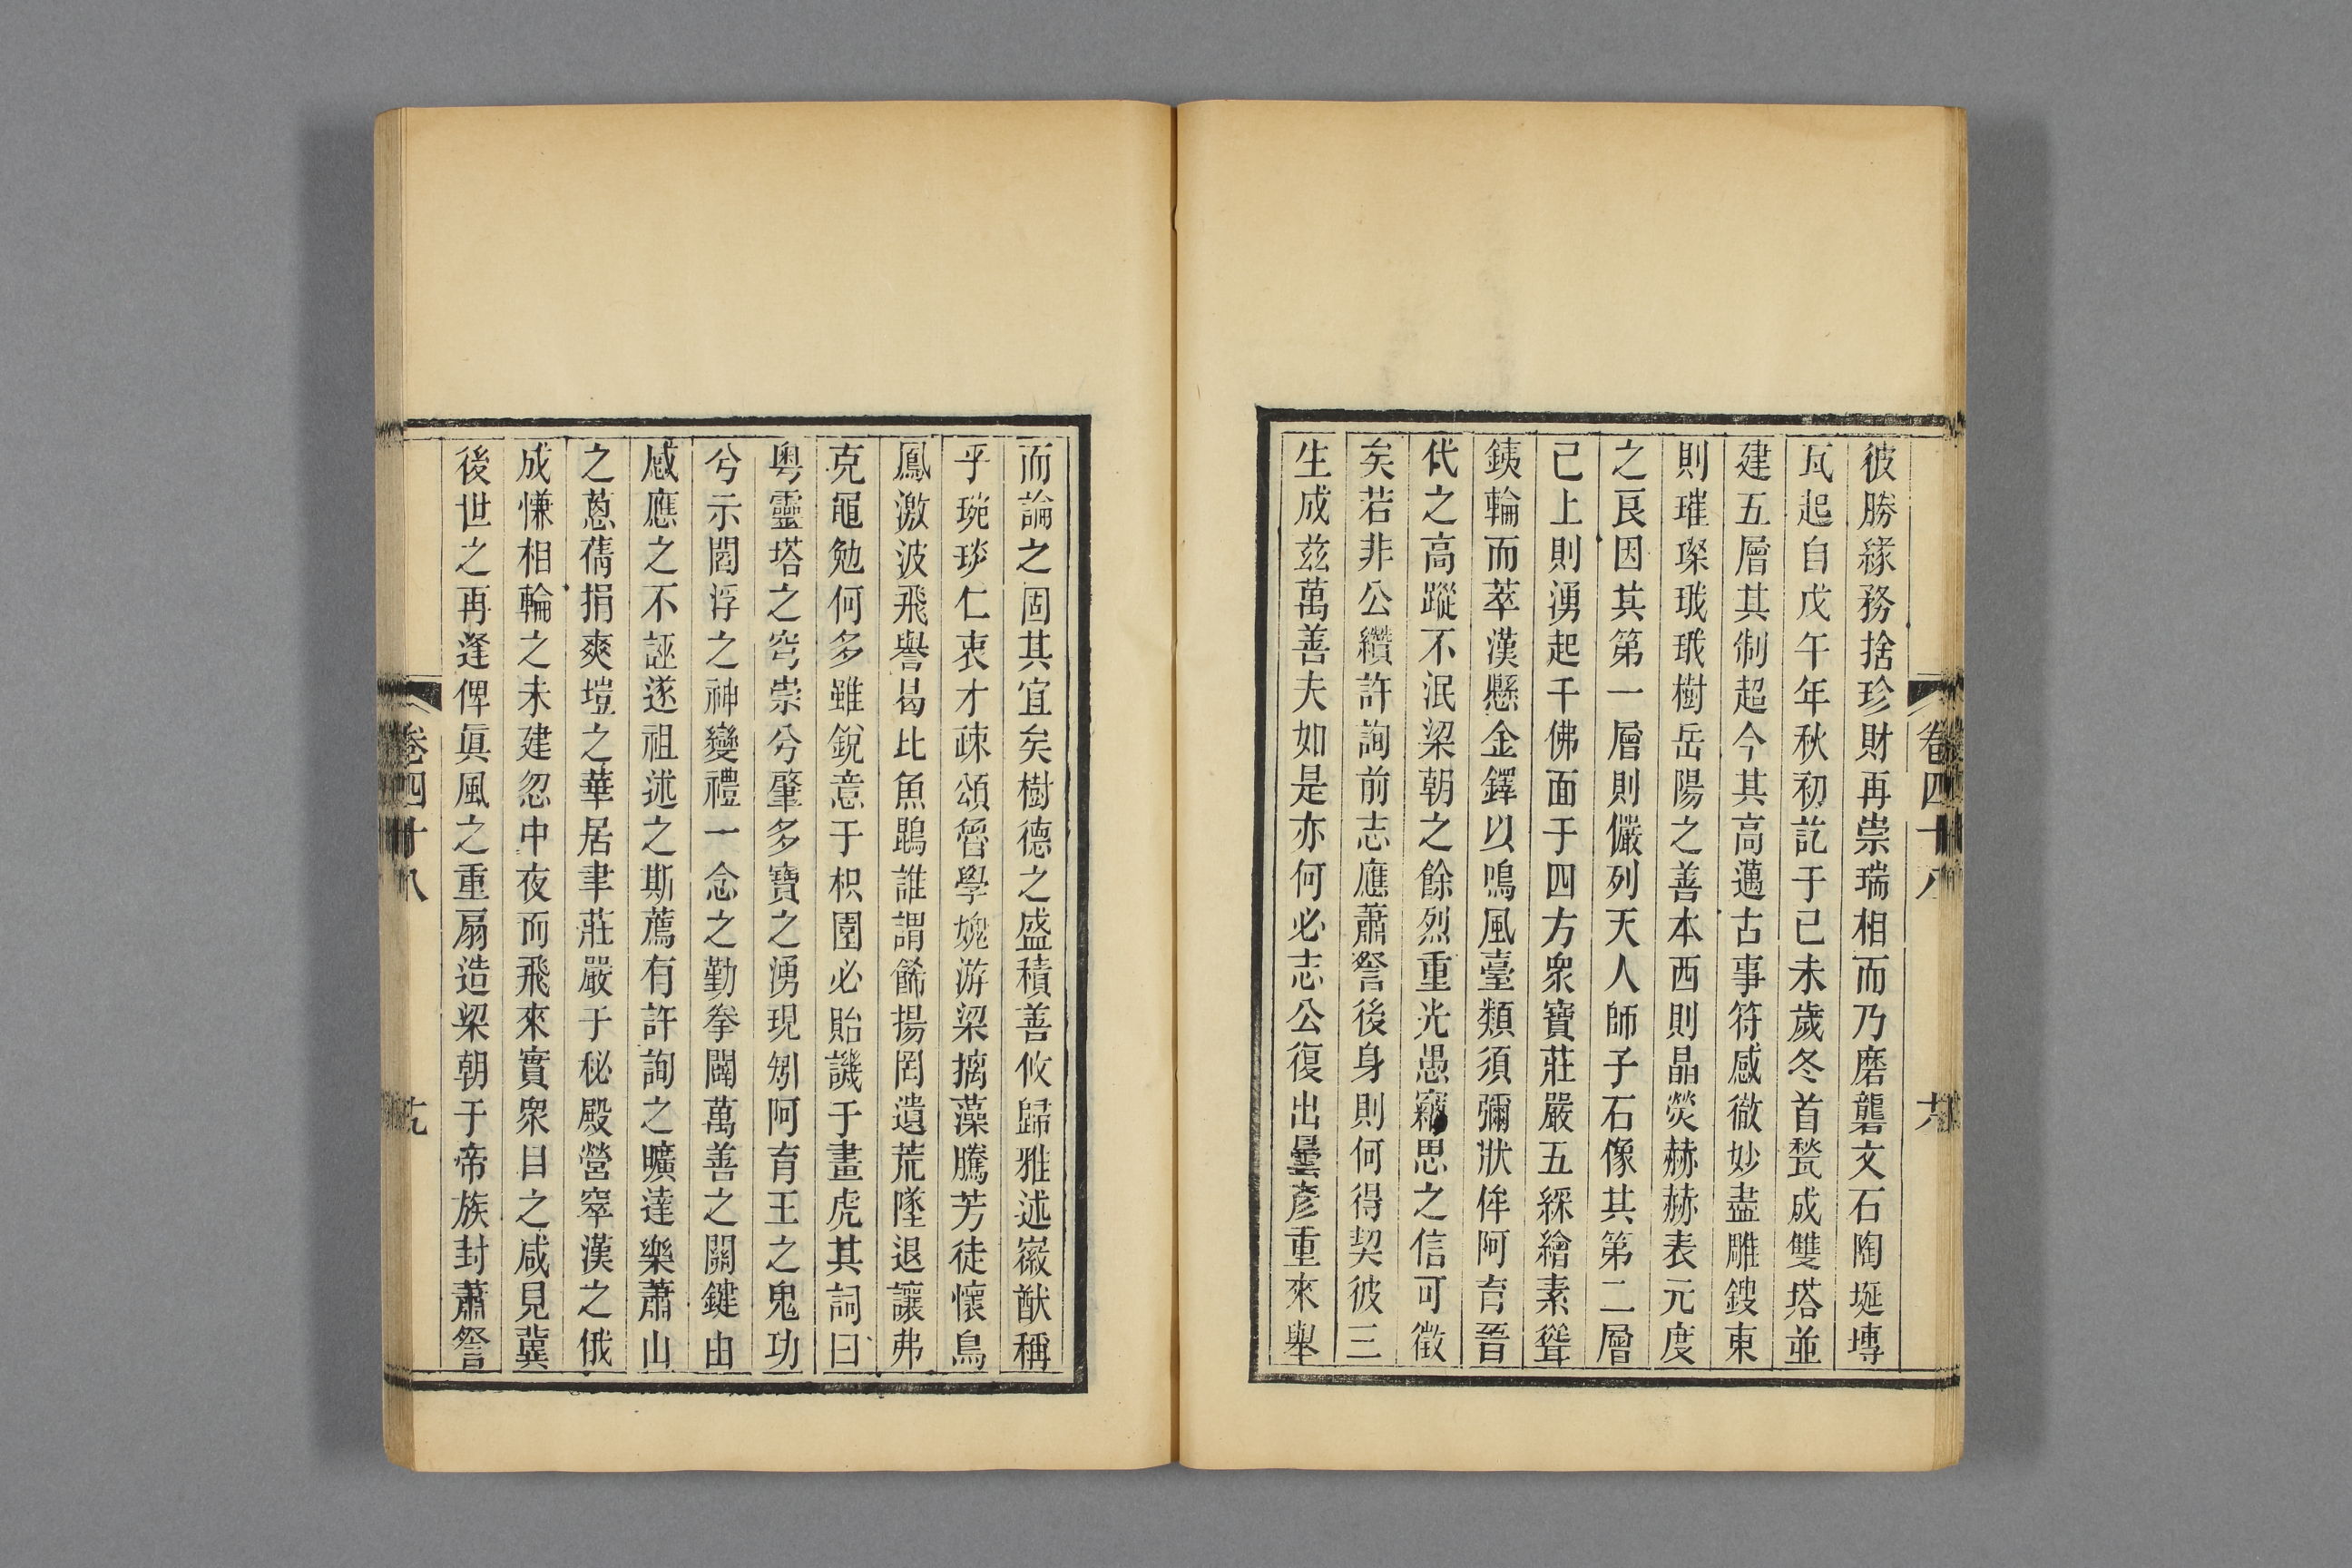 彼勝緣務捨珍財再崇瑞相而乃磨礲文石陶埏塼
瓦起自戊午年秋初訖于已未歲冬首甃成雙塔並
建五層其制超今其高邁古事符感徹妙盡雕鎪東
則璀璨珴珴樹岳陽之善本西則晶熒赫赫表元度
之良因其第一層則儼列天人師子石像其第二層
已上則湧起千佛面于四方衆寶莊嚴五綵繪素聳
銕輪而萃漢懸金鐸以鳴風臺類須彌狀侔阿育晉
代之高蹤不泯梁朝之餘烈重光愚竊思之信可徵
矣若非公纘許詢前志應蕭詧後身則何得契彼三
生成茲萬善夫如是亦何必志公復出曇彥重來舉
卷四十八
而論之固其宜矣樹德之盛積善攸歸雅述徽猷稱
乎琬琰仁衷才疎頌魯學媿游梁摛藻騰芳徒懷鳥
鳳激波飛譽曷比魚鵾誰謂餙揚罔遺荒墜退讓弗
克黽勉何多雖銳意于枳園必貽譏于畫虎其詞曰
粤靈塔之穹崇兮肇多寶之湧現剏阿育王之鬼功
兮示閻浮之神變禮一念之勤拳闢萬善之關鍵由
感應之不誣遂祖述之斯薦有許詢之曠達樂蕭山
之蔥蒨捐爽塏之華居聿莊嚴于秘殿營窣漢之俄
成慊相輪之未建忽中夜而飛來實衆目之咸見冀
後世之再逢俾眞風之重扇造梁朝于帝族封蕭詧
卷四十八